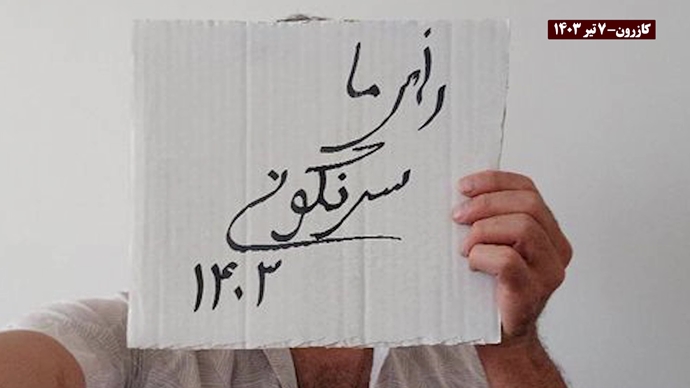 کازرون-۷ تیر ۱۴۰۳
رأی ما
سرنگونی
۱۴۰۳